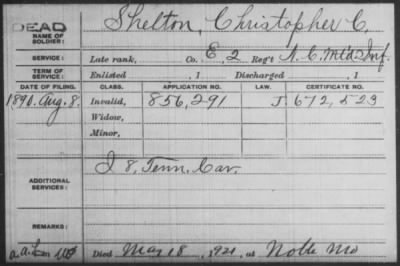 DEAD
NAME OF SOLDIER: Shelton, Christopher C.
SERVICE: Late rank, Co. E, 2 Reg't N. C. Mtd Inf.
TERM OF SERVICE: Enlisted , 1 Discharged , 1
DATE OF FILING. CLASS. APPLICATION NO. LAW. CERTIFICATE NO.
1890. Aug. 8. Invalid, 856,291 J. 672,523
Widow,
Minor,
ADDITIONAL SERVICES: I 8, Tenn. Cav.
REMARKS:
Died May 18, 1921, at Noble Mo